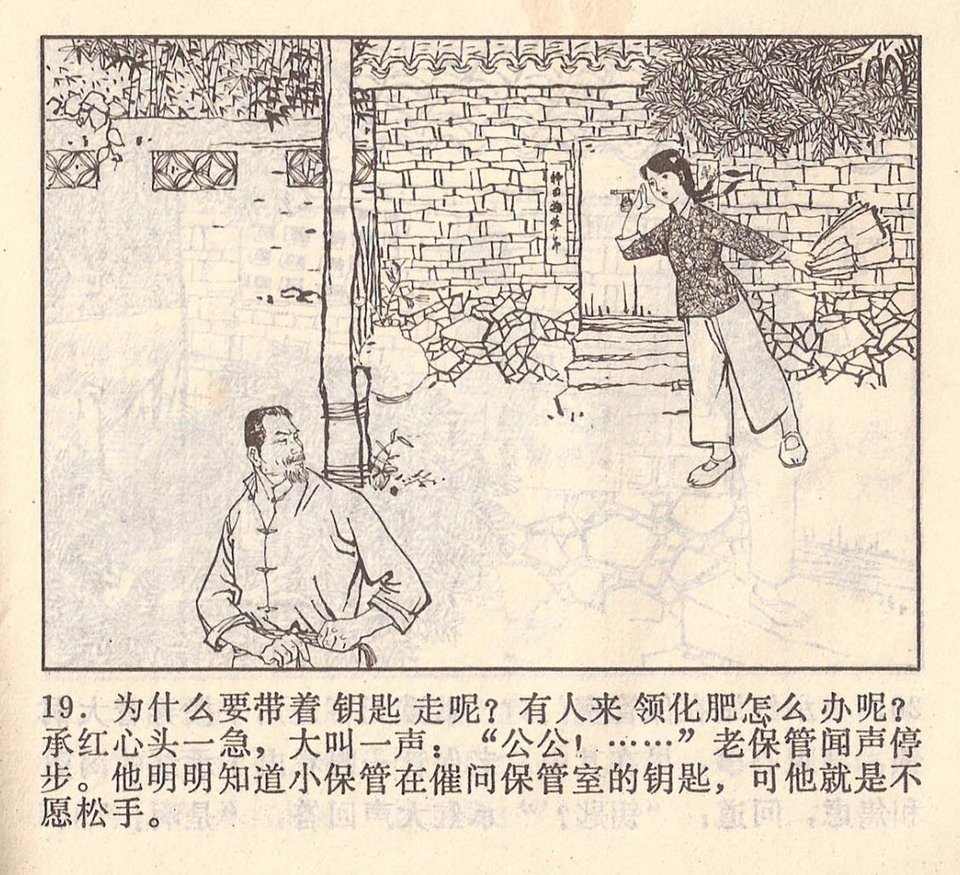 19. 为什么要带着钥匙走呢？有人来领化肥怎么办呢？
承红心头一急，大叫一声：“公公！……”老保管闻声停
步。他明明知道小保管在催问保管室的钥匙，可他就是不
愿松手。